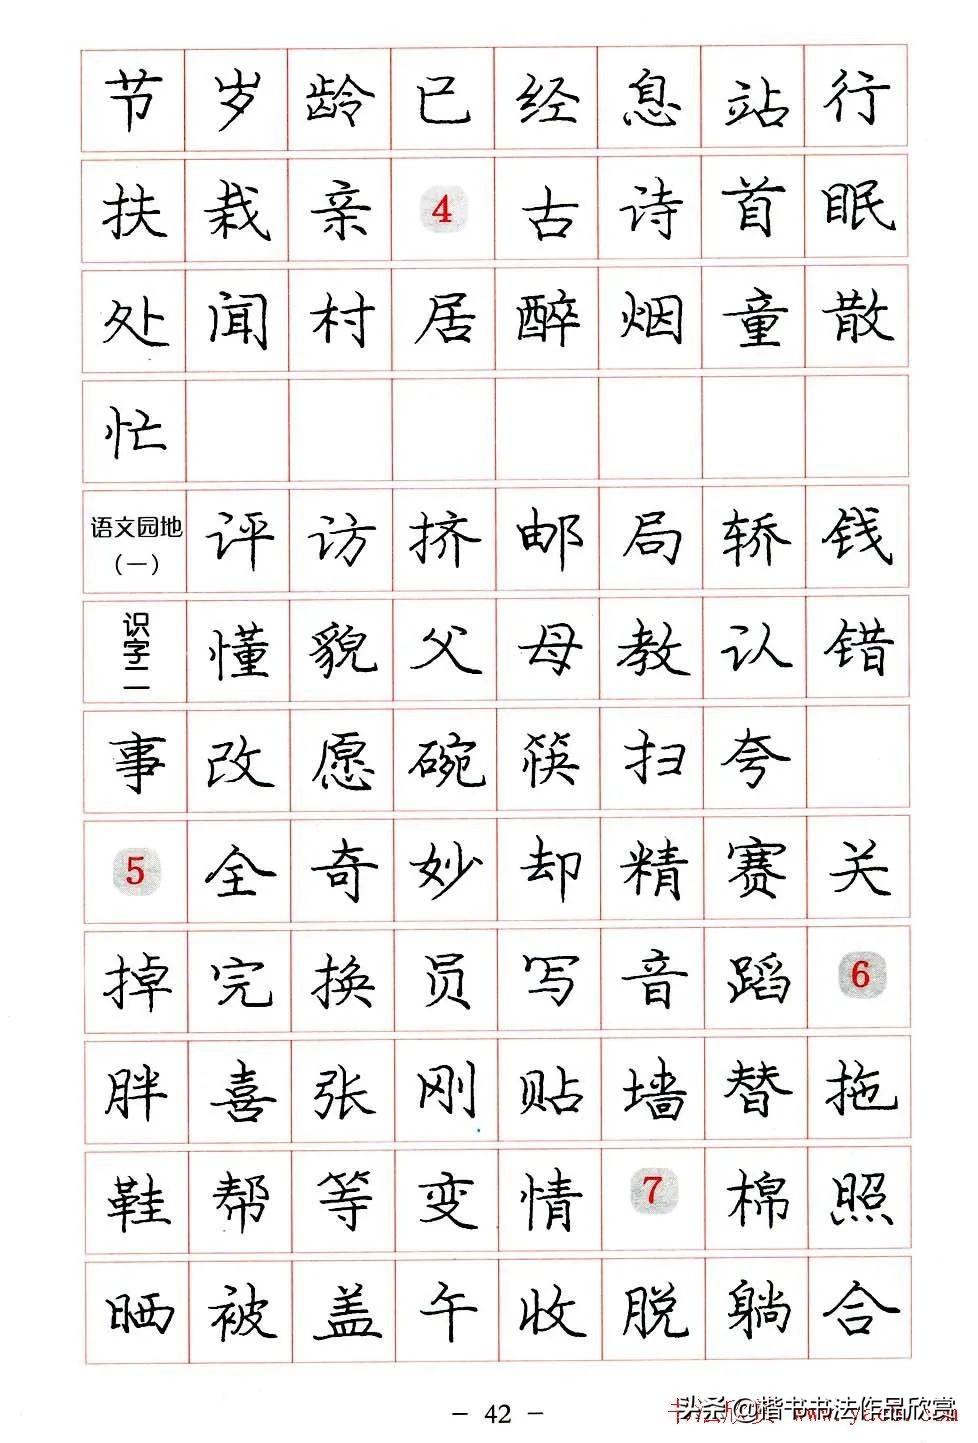 节 岁 龄 已 经 息 站 行
扶 栽 亲 4 古 诗 首 眠
处 闻 村 居 醉 烟 童 散
忙
语文园地（一） 评 访 挤 邮 局 轿 钱
识字二 懂 貌 父 母 教 认 错
事 改 愿 碗 筷 扫 夸
5 全 奇 妙 却 精 赛 关
掉 完 换 员 写 音 蹈 6
胖 喜 张 刚 贴 墙 替 拖
鞋 帮 等 变 情 7 棉 照
晒 被 盖 午 收 脱 躺 合
- 42 -
头条@楷书书法作品欣赏